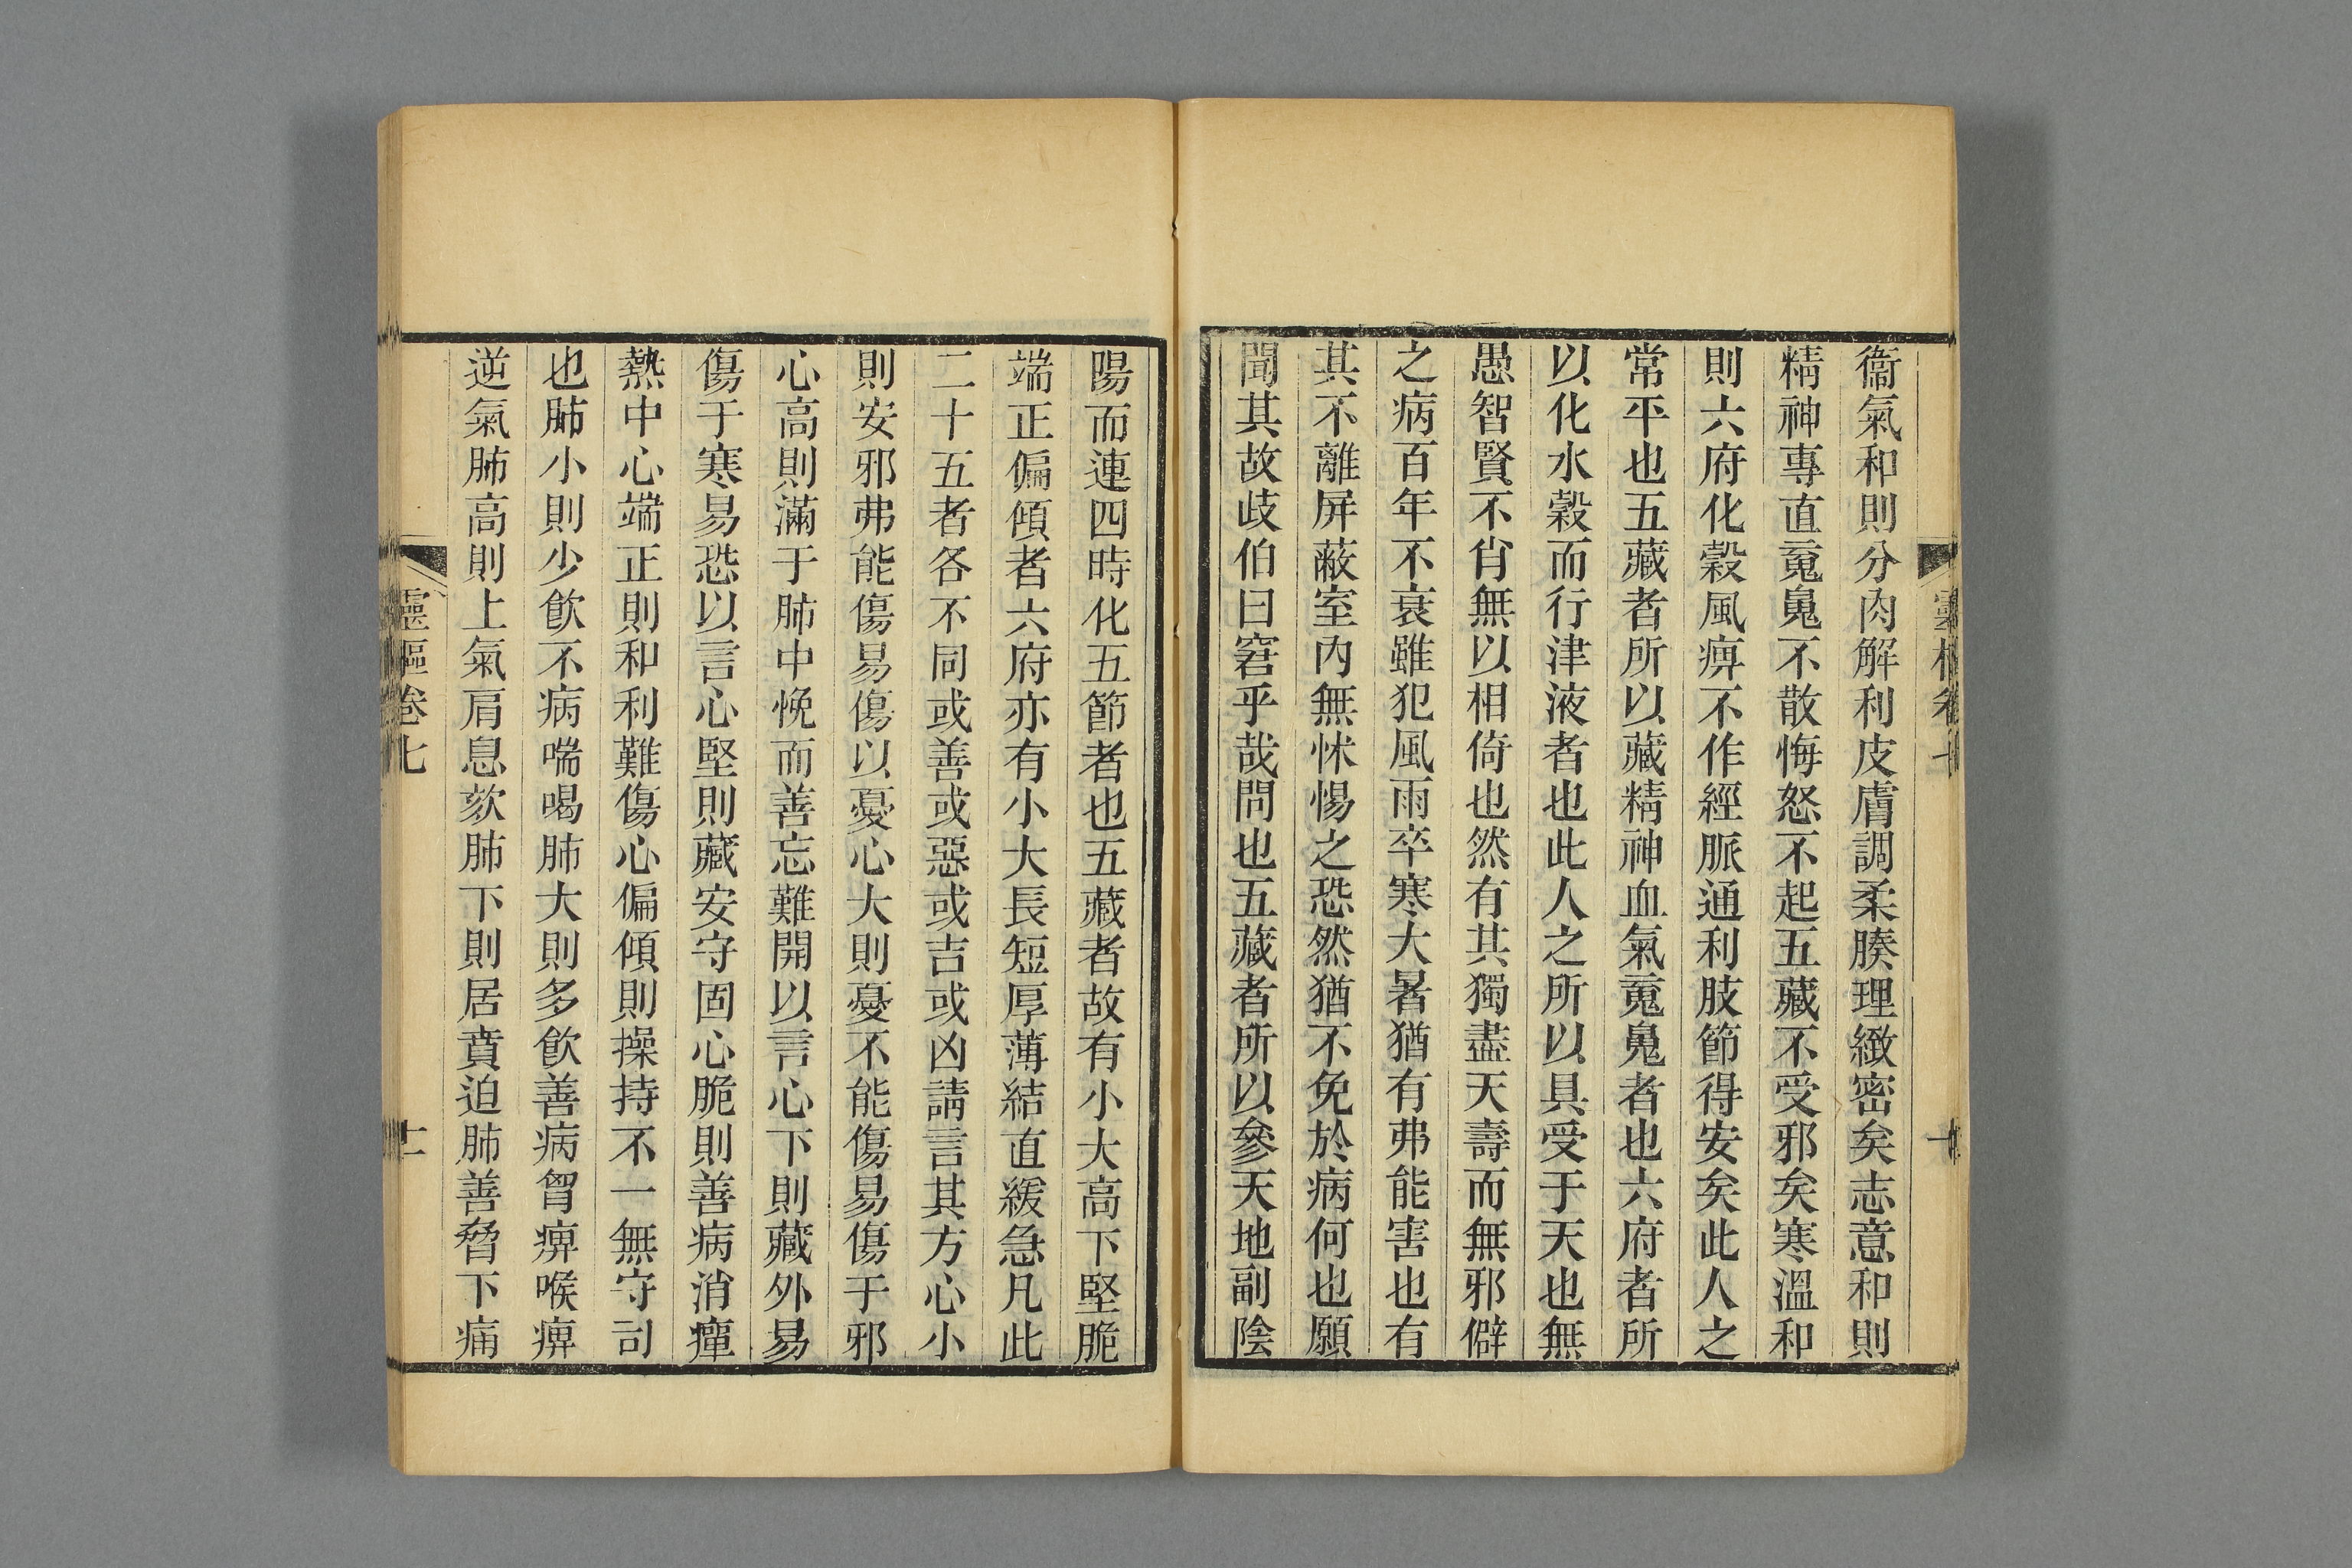 衞氣和則分肉解利皮膚調柔腠理緻密矣志意和則
精神專直䰟鬼不散悔怒不起五藏不受邪矣寒溫和
則六府化穀風痹不作經脈通利肢節得安矣此人之
常平也五藏者所以藏精神血氣䰟鬼者也六府者所
以化水穀而行津液者也此人之所以具受于天也無
愚智賢不肖無以相倚也然有其獨盡天壽而無邪僻
之病百年不衰雖犯風雨卒寒大暑猶有弗能害也有
其不離屏蔽室內無怵惕之恐然猶不免於病何也願
聞其故歧伯曰窘乎哉問也五藏者所以參天地副陰
陽而連四時化五節者也五藏者故有小大高下堅脆
端正偏傾者六府亦有小大長短厚薄結直緩急凡此
二十五者各不同或善或惡或吉或凶請言其方心小
則安邪弗能傷易傷以憂心大則憂不能傷易傷于邪
心高則滿于肺中悗而善忘難開以言心下則藏外易
傷于寒易恐以言心堅則藏安守固心脆則善病消癉
熱中心端正則和利難傷心偏傾則操持不一無守司
也肺小則少飲不病喘喝肺大則多飲善病胷痹喉痹
逆氣肺高則上氣肩息欬肺下則居賁迫肺善脅下痛
靈樞卷七